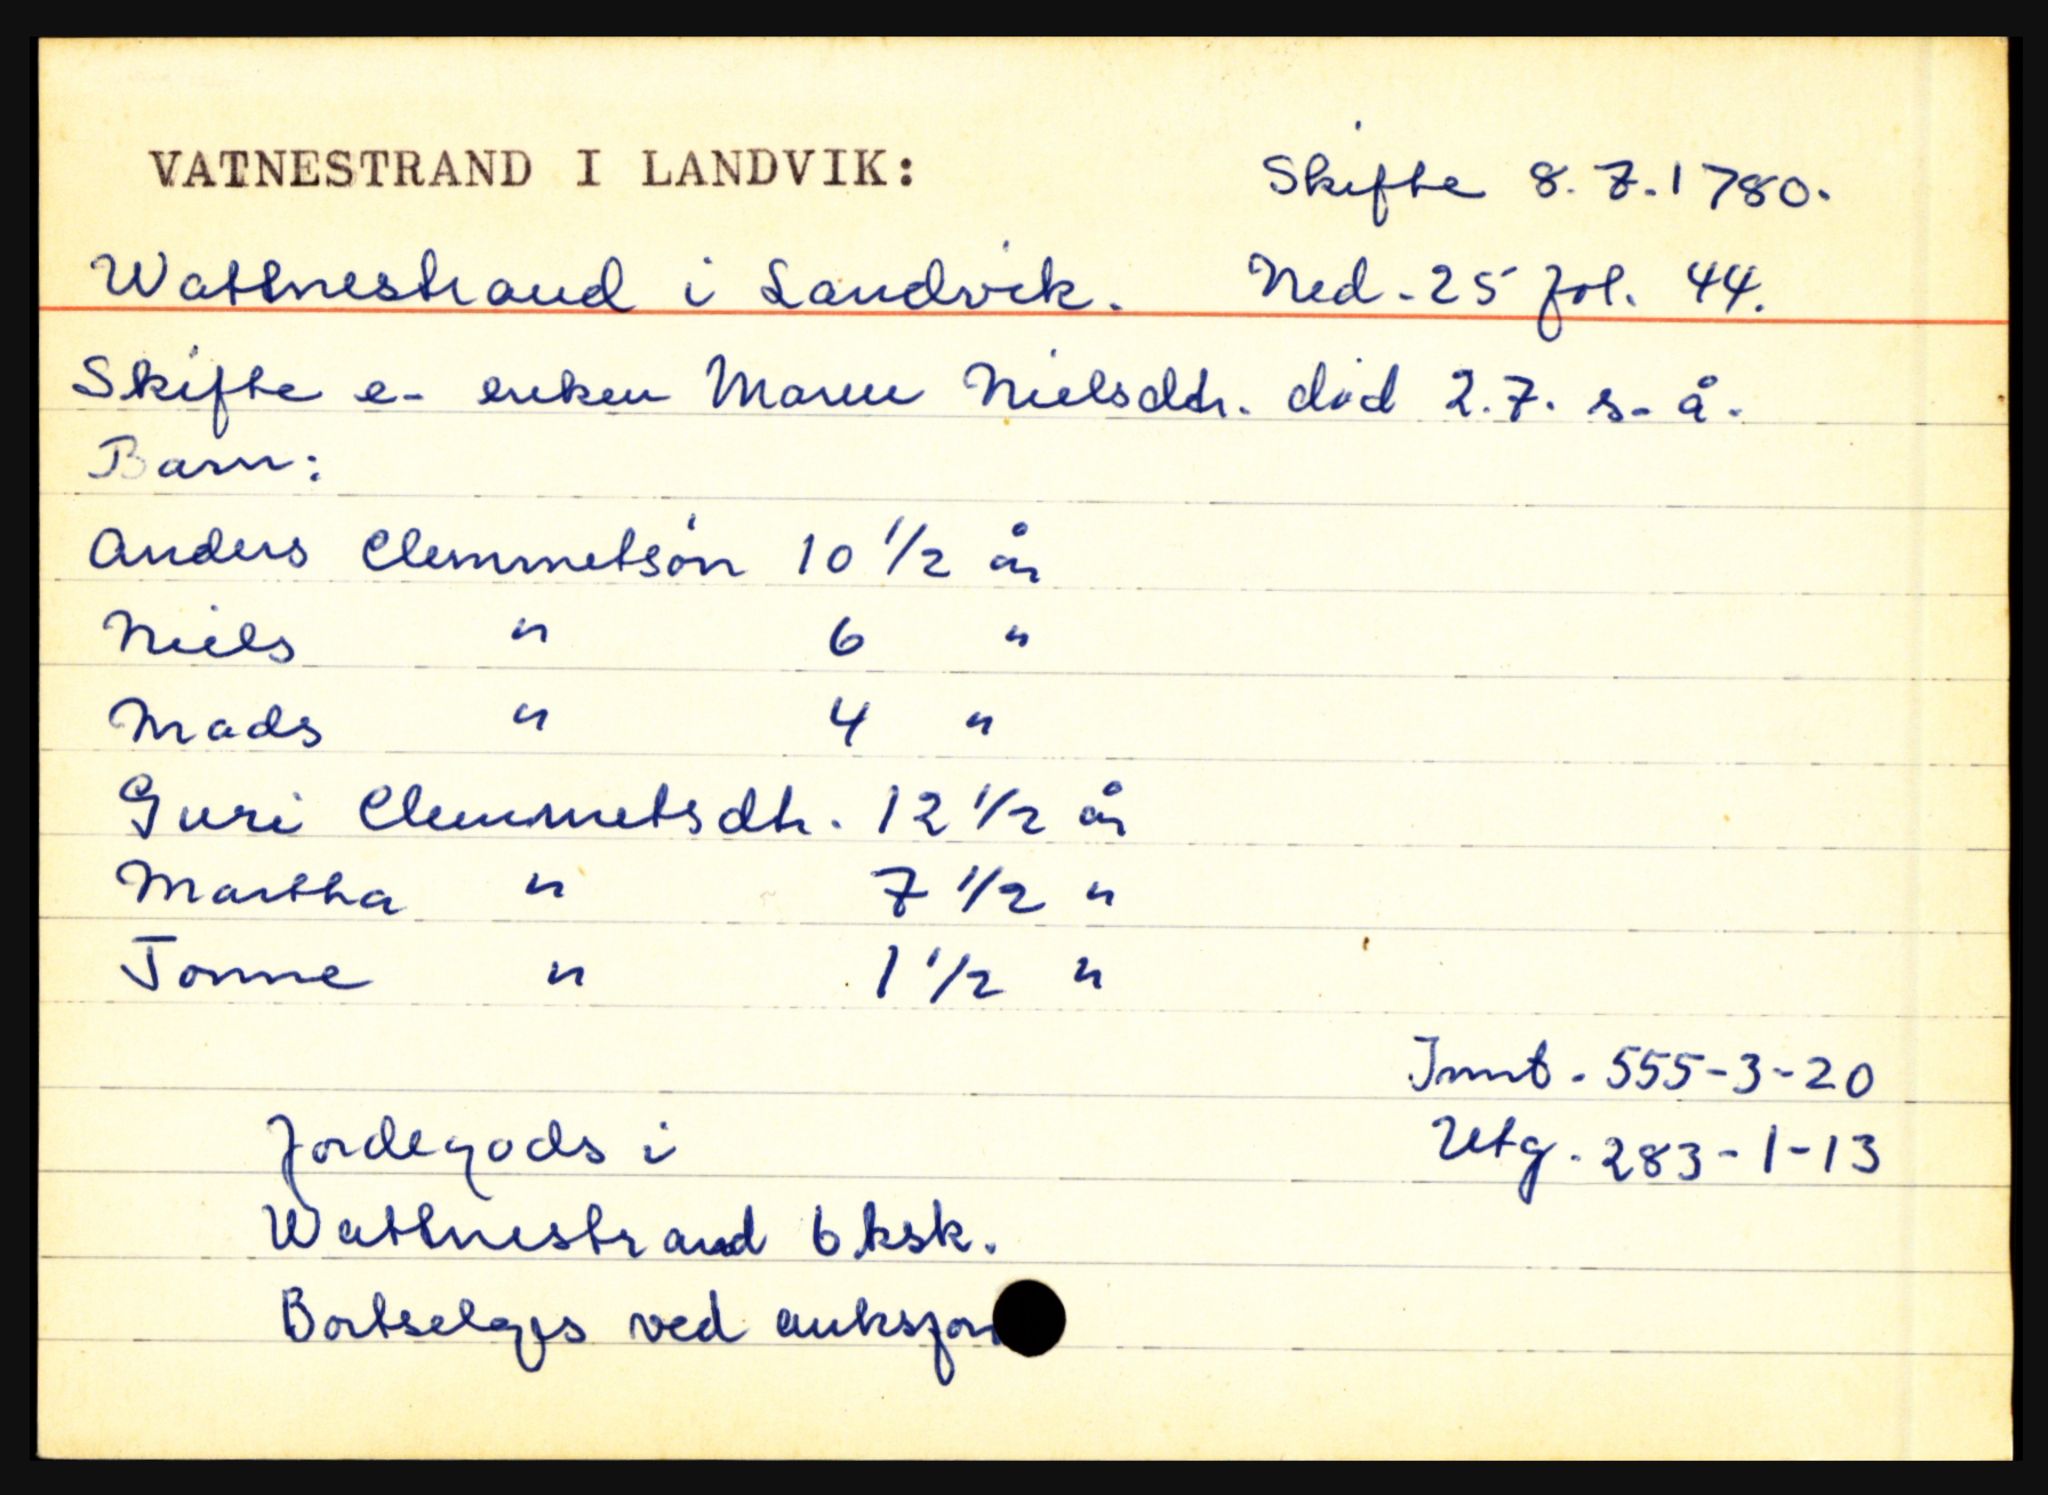 VATNESTRAND I LANDVIK:
Skifte 8.7.1780.
Wathnestrand i Landvik. Ned. 25 fol. 44.
Skifte e. enken Maren Nielsdtr. død 2.7. s.å.
Barn:
Anders Clemmetsøn 10 1/2 år
Niels " 6 "
Mads " 4 "
Guri Clemmetsdtr. 12 1/2 år
Martha " 7 1/2 "
Tonne " 1 1/2 "
Innt. 555-3-20
Utg. 283-1-13
Jordegods i
Wathnestrand 6 ksk.
Bortselges ved auksjon